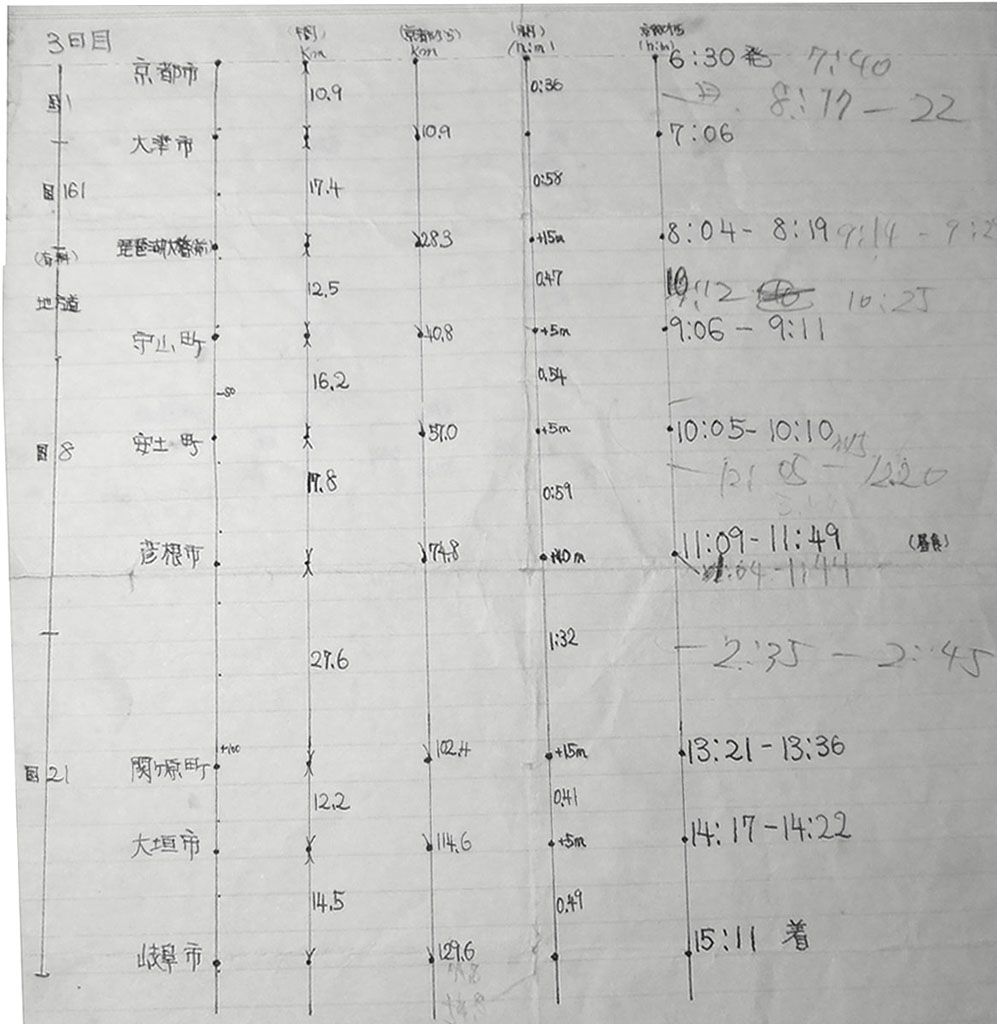 3日目
(間) km
(京都から) km
(間) (h:m)
(h:m)
京都市 6:30発 7:40
国1 10.9 0:36
8:17 - 22
大津市 10.9 7:06
国161 17.4 0:58
琵琶湖大橋 28.3 +15m 8:04 - 8:19 9:14
(有料)
12.5 0:47
地方道 10:25
守山町 40.8 +5m 9:06 - 9:11
16.2 0:54
50
国8 安土町 57.0 +5m 10:05 - 10:10
17.8 0:59 12:05 - 12:20
彦根市 74.8 +40m 11:09 - 11:49 (昼食)
1:44
27.6 1:32 2:35 - 2:45
+100
国21 関ヶ原町 102.4 +15m 13:21 - 13:36
12.2 0:41
大垣市 114.6 +5m 14:17 - 14:22
14.5 0:49
岐阜市 129.6 15:11 着